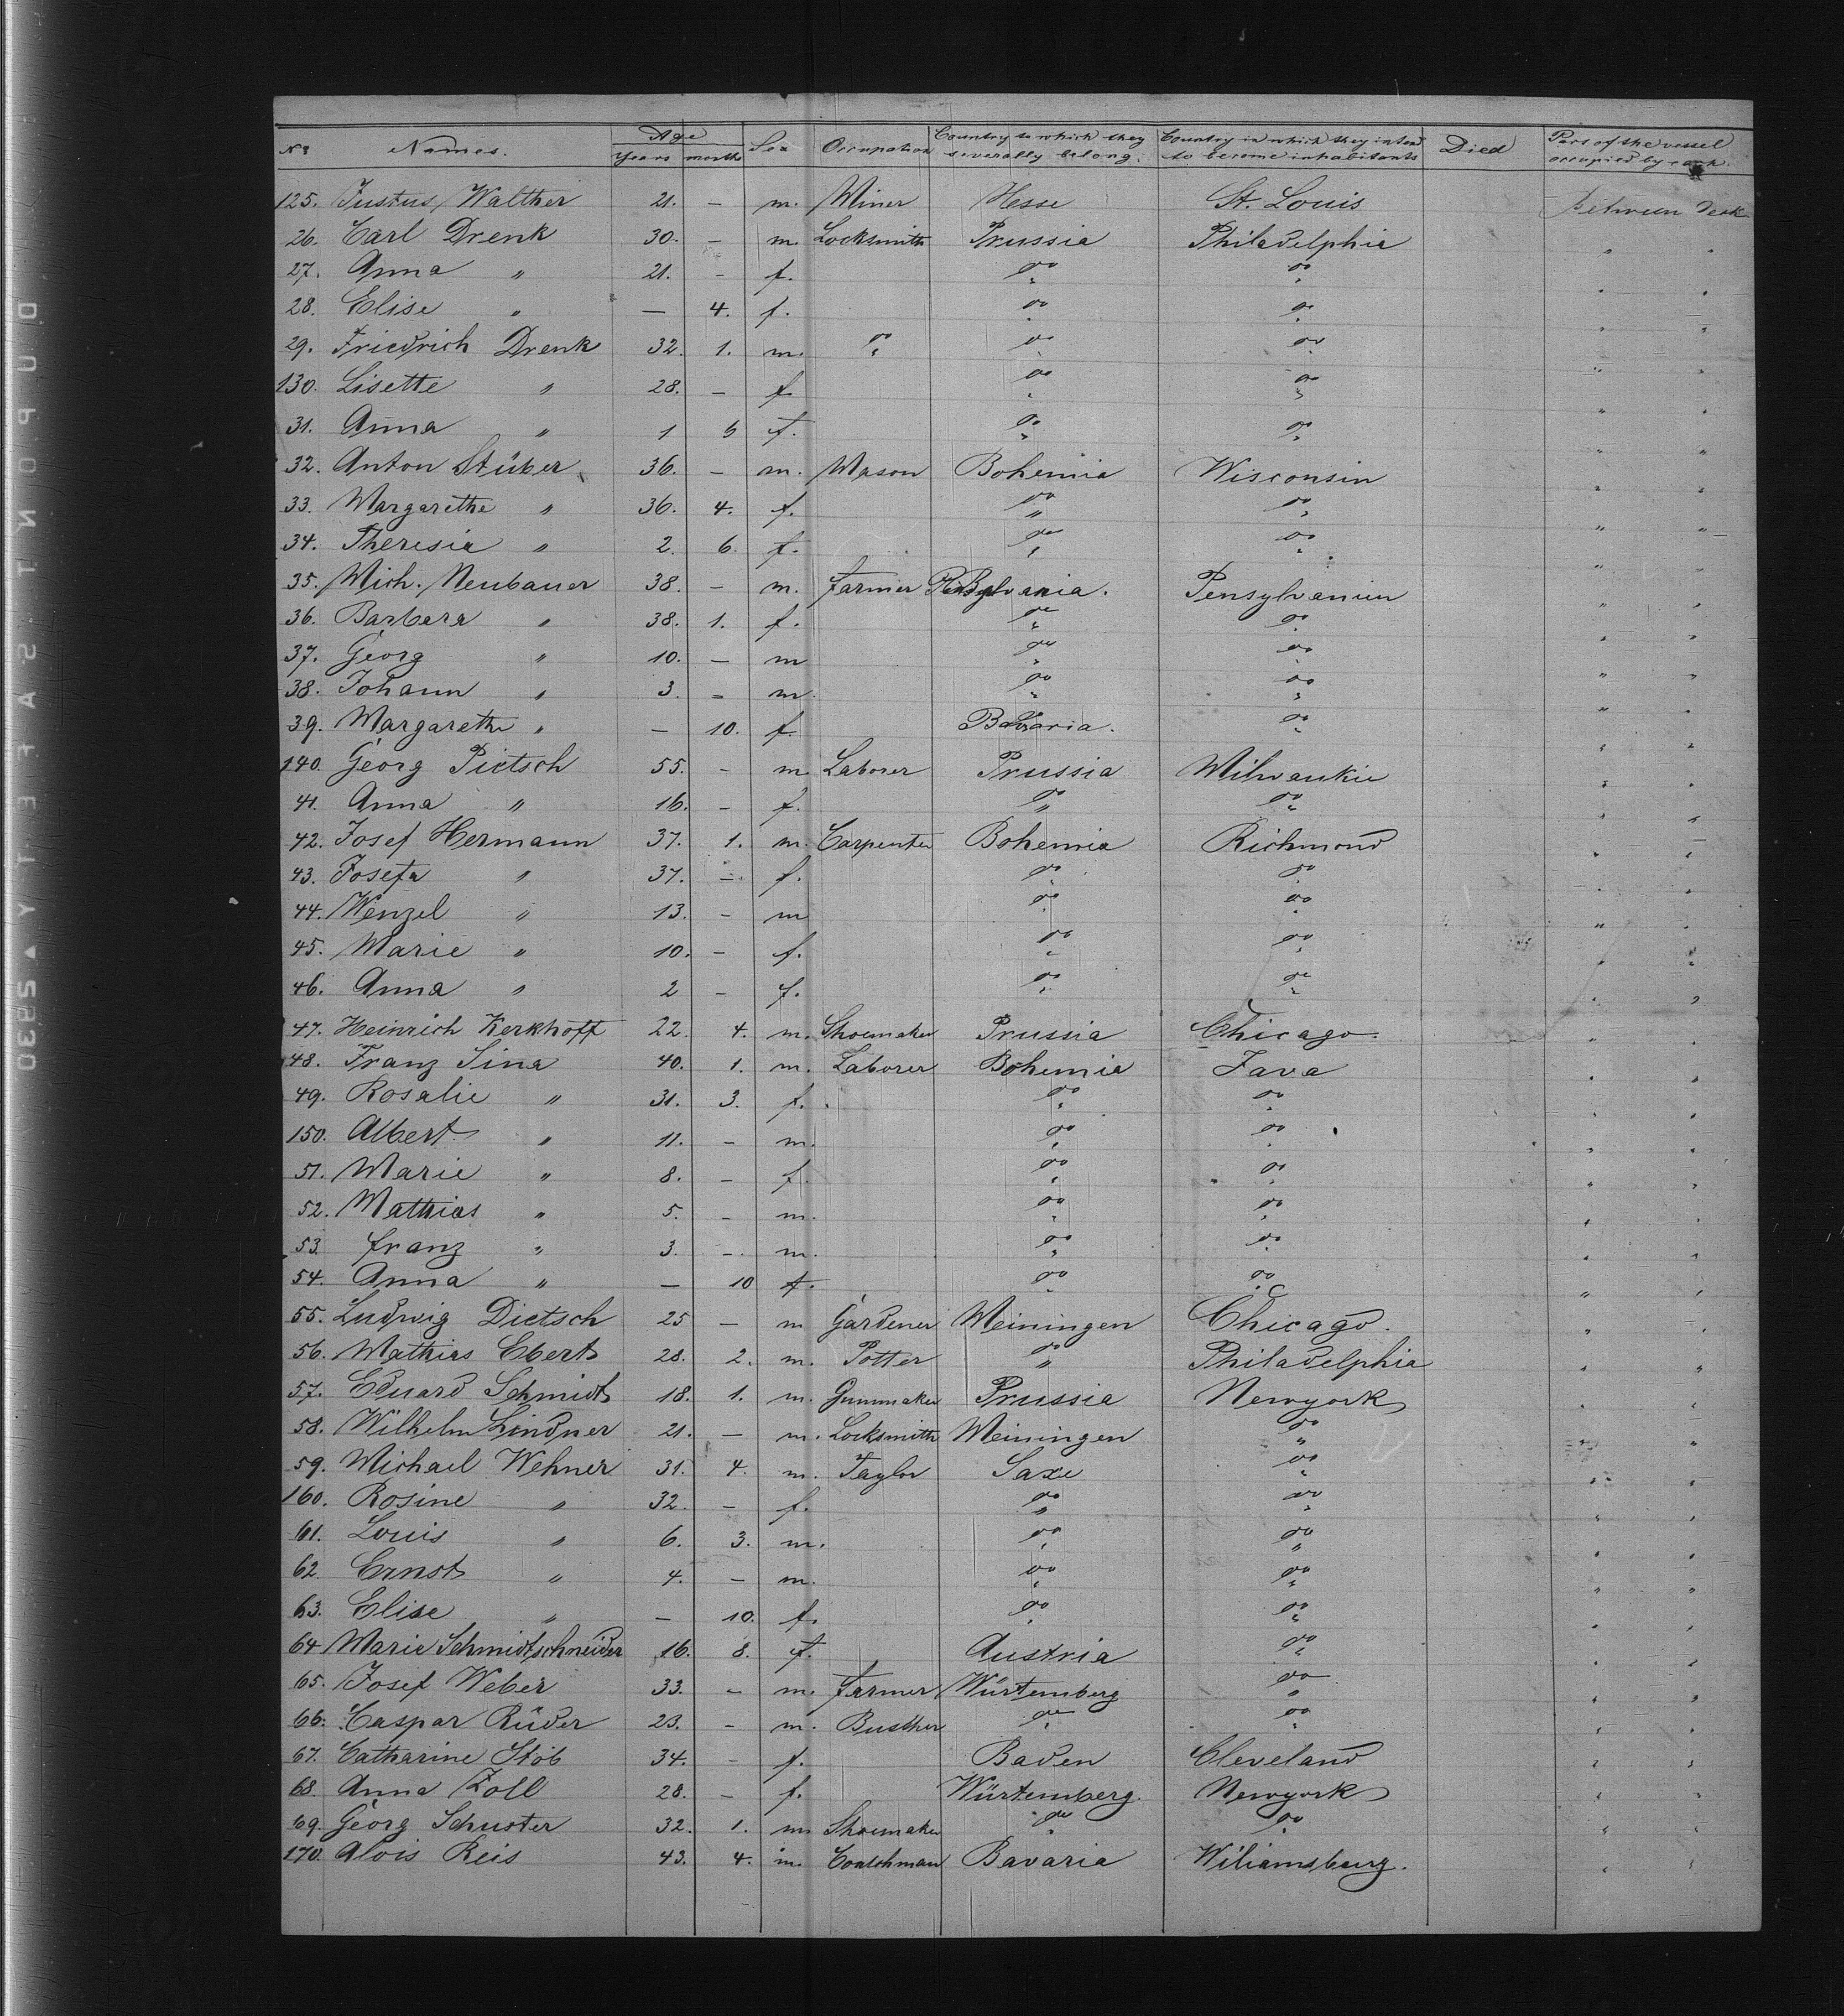 No. Names. Age Years months Sex Occupation Country to which they severally belong. Country in which they intend to become inhabitants Died Part of the vessel occupied by each.
125. Justus Walther 21. — m. Miner Hesse St. Louis Between Deck
26. Carl Drenk 30. — m. Locksmith Prussia Philadelphia " "
27. Anna " 21. — f. do do " "
28. Elise " — 4. f. do do " "
29. Friedrich Drenk 32. 1. m. do do do " "
130. Lisette " 28. — f. do do " "
31. Anna " 1 6 f. do do " "
32. Anton Stüber 36. — m. Mason Bohemia Wisconsin " "
33. Margarethe " 36. 4. f. do do " "
34. Theresia " 2. 6. f. do do " "
35. Mich. Neubauer 38. — m. Farmer Pensylvanien " "
36. Barbara " 38. 1. f. do do " "
37. Georg " 10. — m do do " "
38. Johann " 3. — m. do do " "
39. Margarethe " — 10. f. Bavaria. do " "
140. Georg Pietsch 55. — m. Laborer Prussia Milwaukie " "
41. Anna " 16. — f. do do " "
42. Josef Hermann 37. 1. m. Carpenter Bohemia Richmond " "
43. Josefa " 37. — f. do do " "
44. Wenzel " 13. — m do do " "
45. Marie " 10. — f. do do " "
46. Anna " 2 — f. do do " "
47. Heinrich Kerkhoff 22. 4. m. Shoemaker Prussia Chicago. " "
48. Franz Sina 40. 1. m. Laborer Bohemia Java " "
49. Rosalie " 31. 3. f. do do " "
150. Albert " 11. — m. do do " "
51. Marie " 8. — f. do do " "
52. Mathias " 5. — m. do do " "
53. Franz " 3. — m. do do " "
54. Anna " — 10 f. do do " "
55. Ludwig Dietsch 25 — m Gardener Meiningen Chicago. " "
56. Mathias Ebert 28. 2. m. Potter do Philadelphia " "
57. Eduard Schmidt 18. 1. m. Gunmaker Prussia Newyork " "
58. Wilhelm Lindner 21. — m. Locksmith Meiningen do " "
59. Michael Wehner 31. 4. m. Taylor Saxe do " "
160. Rosine " 32. — f. do do " "
61. Louis " 6. 3. m. do do " "
62. Ernst " 4. — m. do do " "
63. Elise " — 10. f. do do " "
64 Marie Schmidtschneider 16. 8. f. Austria do " "
65. Josef Weber 33. — m. Farmer Würtemberg do " "
66. Caspar Rüder 23. — m. Busther do do " "
67. Catharine Stöb 34. — f. Baden Cleveland " "
68. Anna Zoll 28. — f. Würtemberg. Newyork " "
69. Georg Schuster 32. 1. m Shoemaker do do " "
170. Alois Reis 43. 4. m. Coatchman Bavaria Wiliamsburg. " "